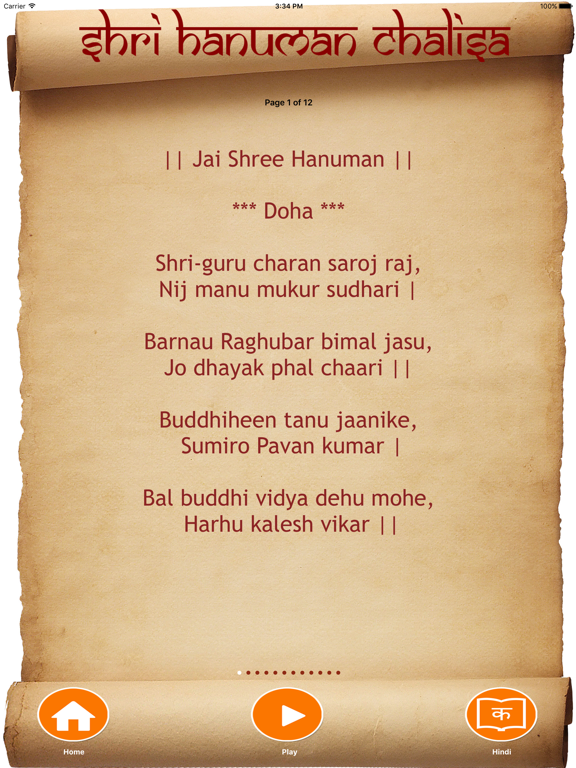 Carrier
3:34 PM
100%
Shri Hanuman Chalisa
Page 1 of 12
|| Jai Shree Hanuman ||
*** Doha ***
Shri-guru charan saroj raj,
Nij manu mukur sudhari |
Barnau Raghubar bimal jasu,
Jo dhayak phal chaari ||
Buddhiheen tanu jaanike,
Sumiro Pavan kumar |
Bal buddhi vidya dehu mohe,
Harhu kalesh vikar ||
क
Home
Play
Hindi